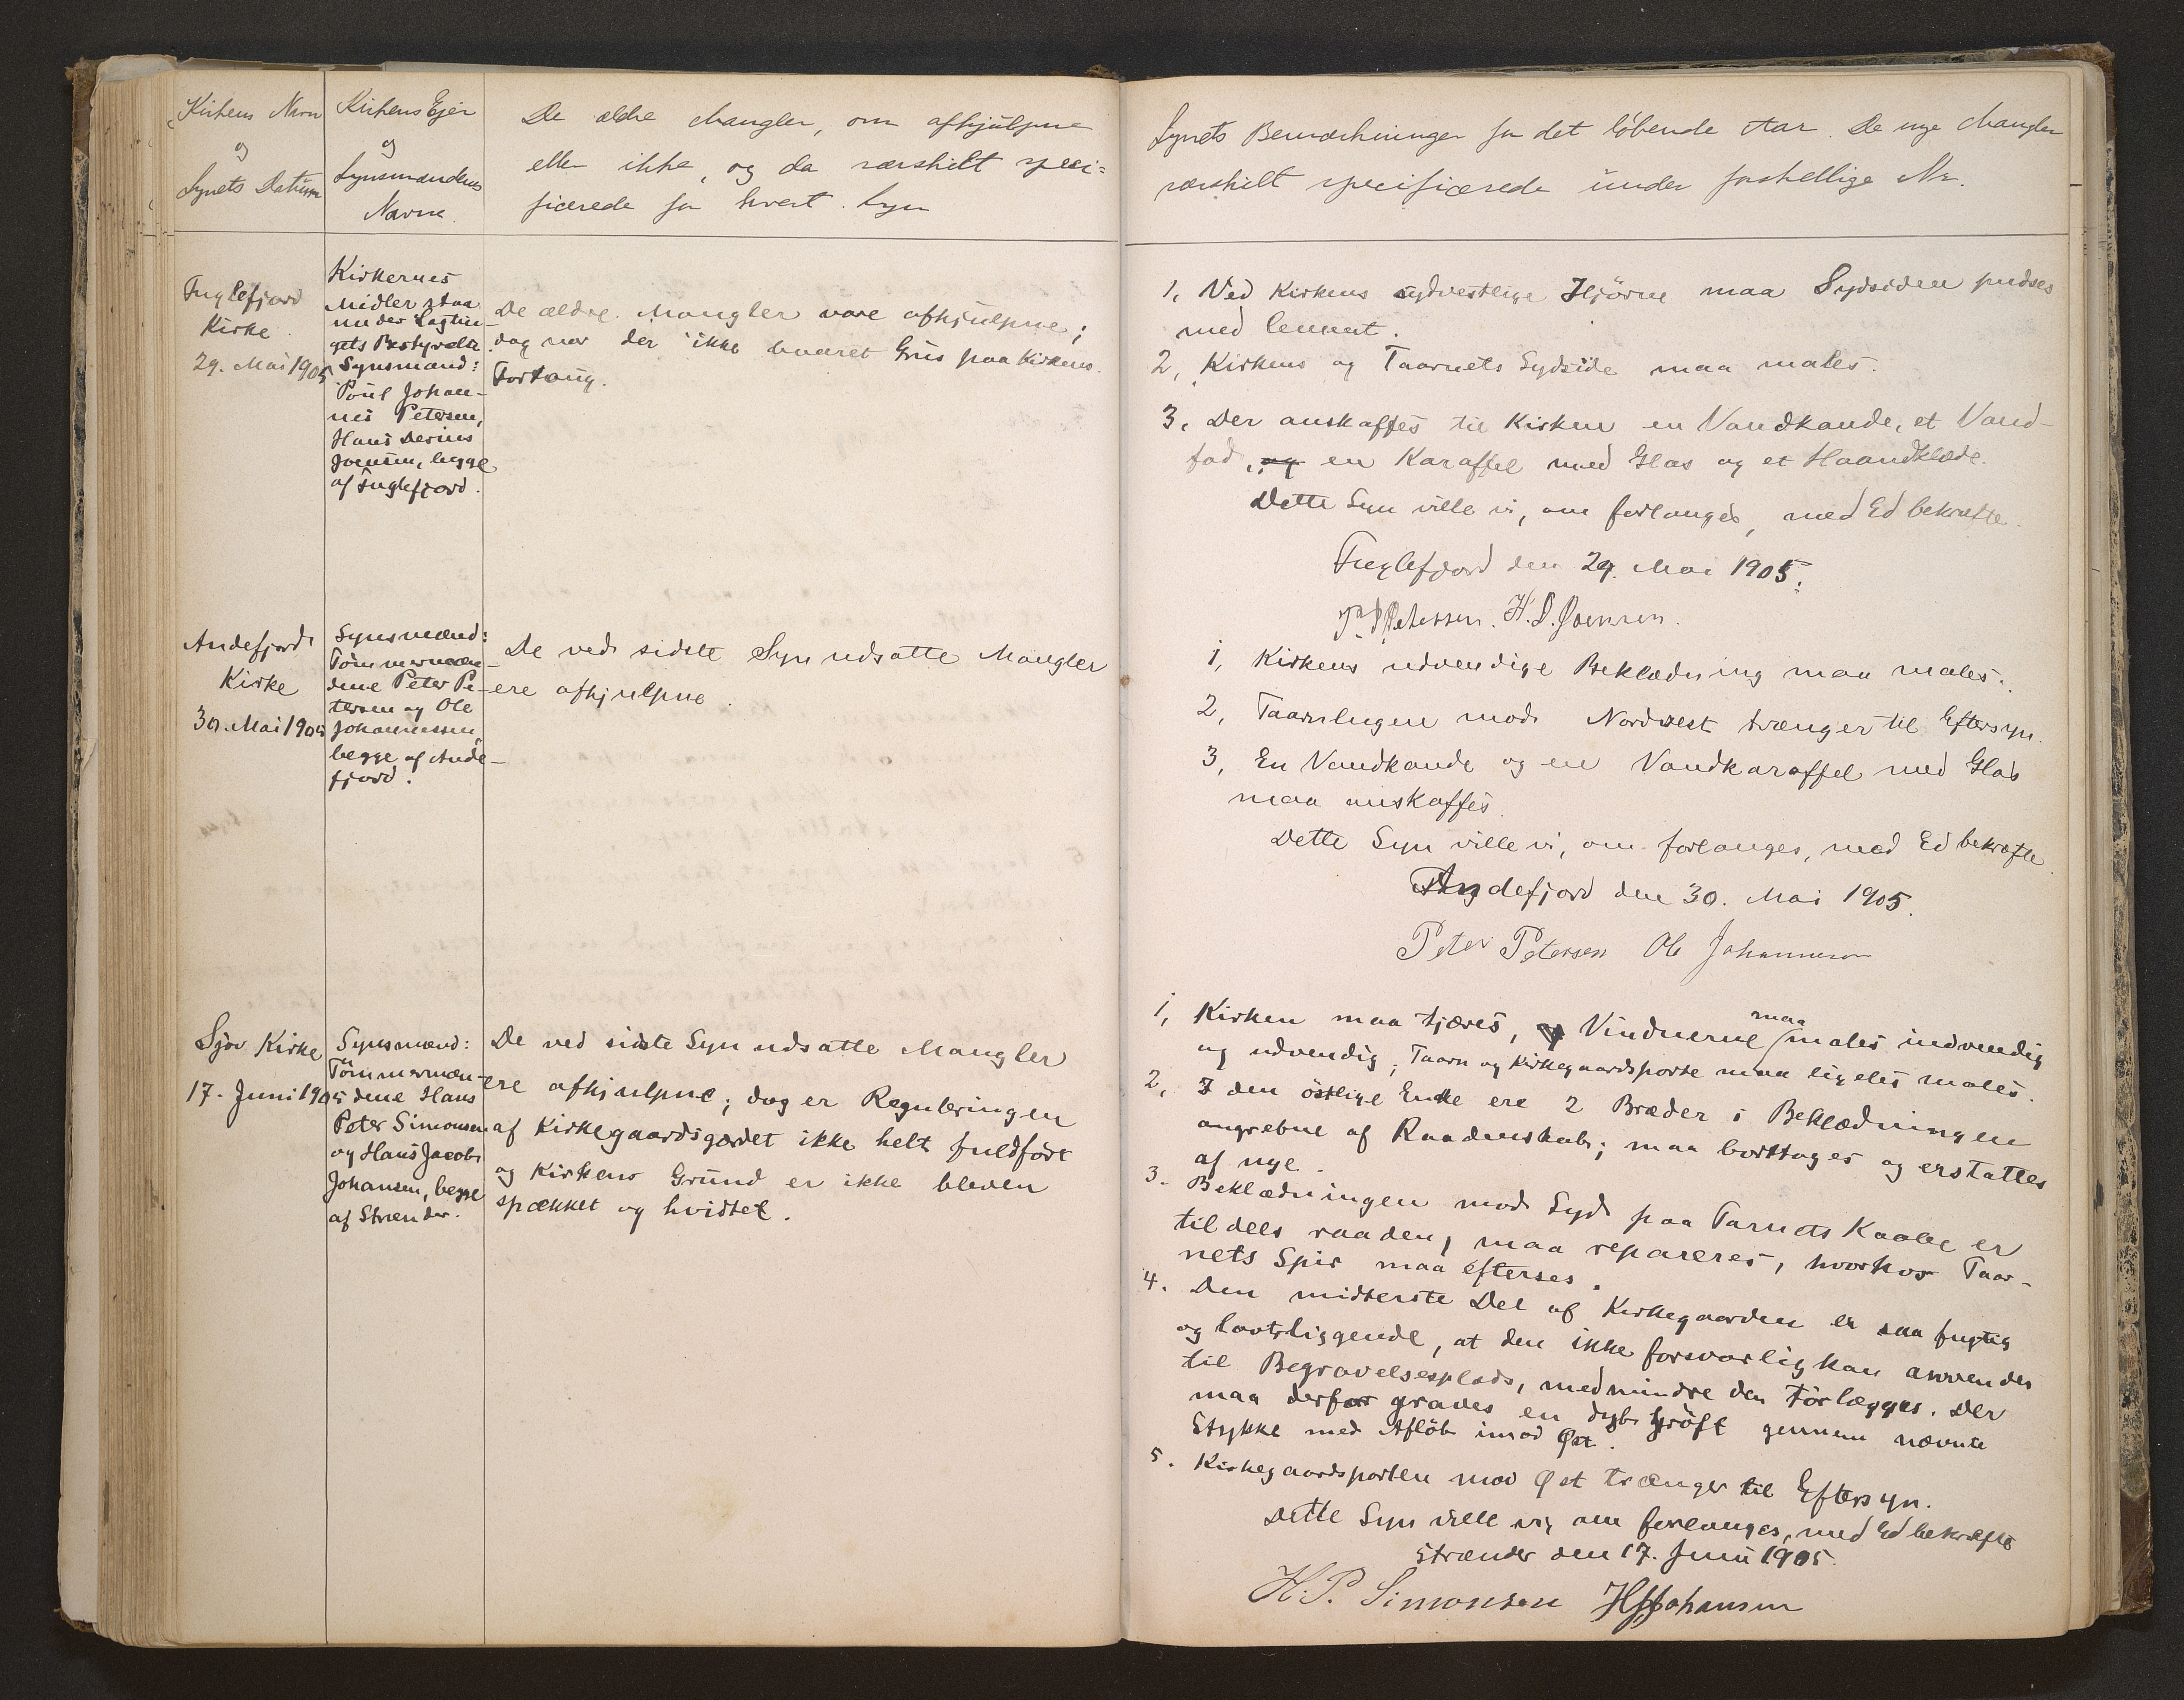 Kirkens Navn
og
Synets Datum
Kirkens Ejer
og
Synsmændenes
Navne.
De ældre Mangler, om afhjulpne
eller ikke, og da særskilt speci=
ficerede for hvert Syn
Synets Bemærkninger for det løbende Aar. De nye Mangler
særskilt specificerede under forskellige Nr.
Fuglefjord
Kirke
29. Mai 1905
Kirkernes
Midler staa
under Lagtin-
gets Bestyrelse.
Synsmænd:
Poul Johan-
nes Petersen,
Hans Derius
Joensen, begge
af Fuglefjord.
De ældre Mangler vare afhjulpne;
dog var der ikke Grus paa Kirkens
Fortoug.
1, Ved Kirkens sydvestlige Hjörne maa Sydsiden pudses
med Cement.
2, Kirkens og Taarnets Sydside maa males.
3, Der anskaffes til Kirken en Vandkande, et Vand-
fad, og en Karaffel med Glas og et Haandklæde.
Dette Syn ville vi, om forlanges, med Ed bekræfte.
Fuglefjord den 29. Mai 1905.
P. J. Petersen. H. D. Joensen.
Andefjord
Kirke
30. Mai 1905
Synsmænd:
Tömmermæn-
dene Peter Pe-
tersen og Ole
Johannessen,
begge af Ande-
fjord.
De ved sidste Syn udsatte Mangler
ere afhjulpne.
1, Kirkens udvendige Beklædning maa males.
2, Taarnlugen mod Nordvest trænger til Eftersyn.
3, En Vandkande og en Vandkaraffel med Glas
maa anskaffes.
Dette Syn ville vi, om forlanges, med Ed bekræfte.
Andefjord den 30. Mai 1905.
Peter Petersen Ole Johannesen
Sjov Kirke
17. Juni 1905
Synsmænd:
Tömmermæn-
dene Hans
Peter Simonsen
og Hans Jacob
Johansen, begge
af Strænder.
De ved sidste Syn udsatte Mangler
ere afhjulpne; dog er Reguleringen
af Kirkegaardsgærdet ikke helt fuldfört
og Kirkens Grund er ikke bleven
spækket og hvidtet.
1, Kirken maa tjæres, og Vinduerne maa males indvendig
og udvendig; Taarn og Kirkegaardsporte maa ligeles males.
2, I den östlige Ende ere 2 Bræder i Beklædningen
angrebne af Raaddenskab; maa borttages og erstattes
af nye.
3. Beklædningen mod Syd paa Tarnets Kaabe er
tildels raaden, maa repareres, hvorhos Taar-
nets Spir maa efterses.
4. Den midterste Del af Kirkegaarden er saa fugtig
og lavtliggende, at den ikke forsvarlig kan anvendes
til Begravelsesplads, medmindre den törlægges. Der
maa derfor graves en dyb Gröft gennem nævnte
Stykke med Aflöb imod Øst.
5. Kirkegaardsporten mod Øst trænger til Eftersyn.
Dette Syn ville vi, om forlanges, med Ed bekræfte
Strænder den 17. Juni 1905.
H. P. Simonsen HJJohansen